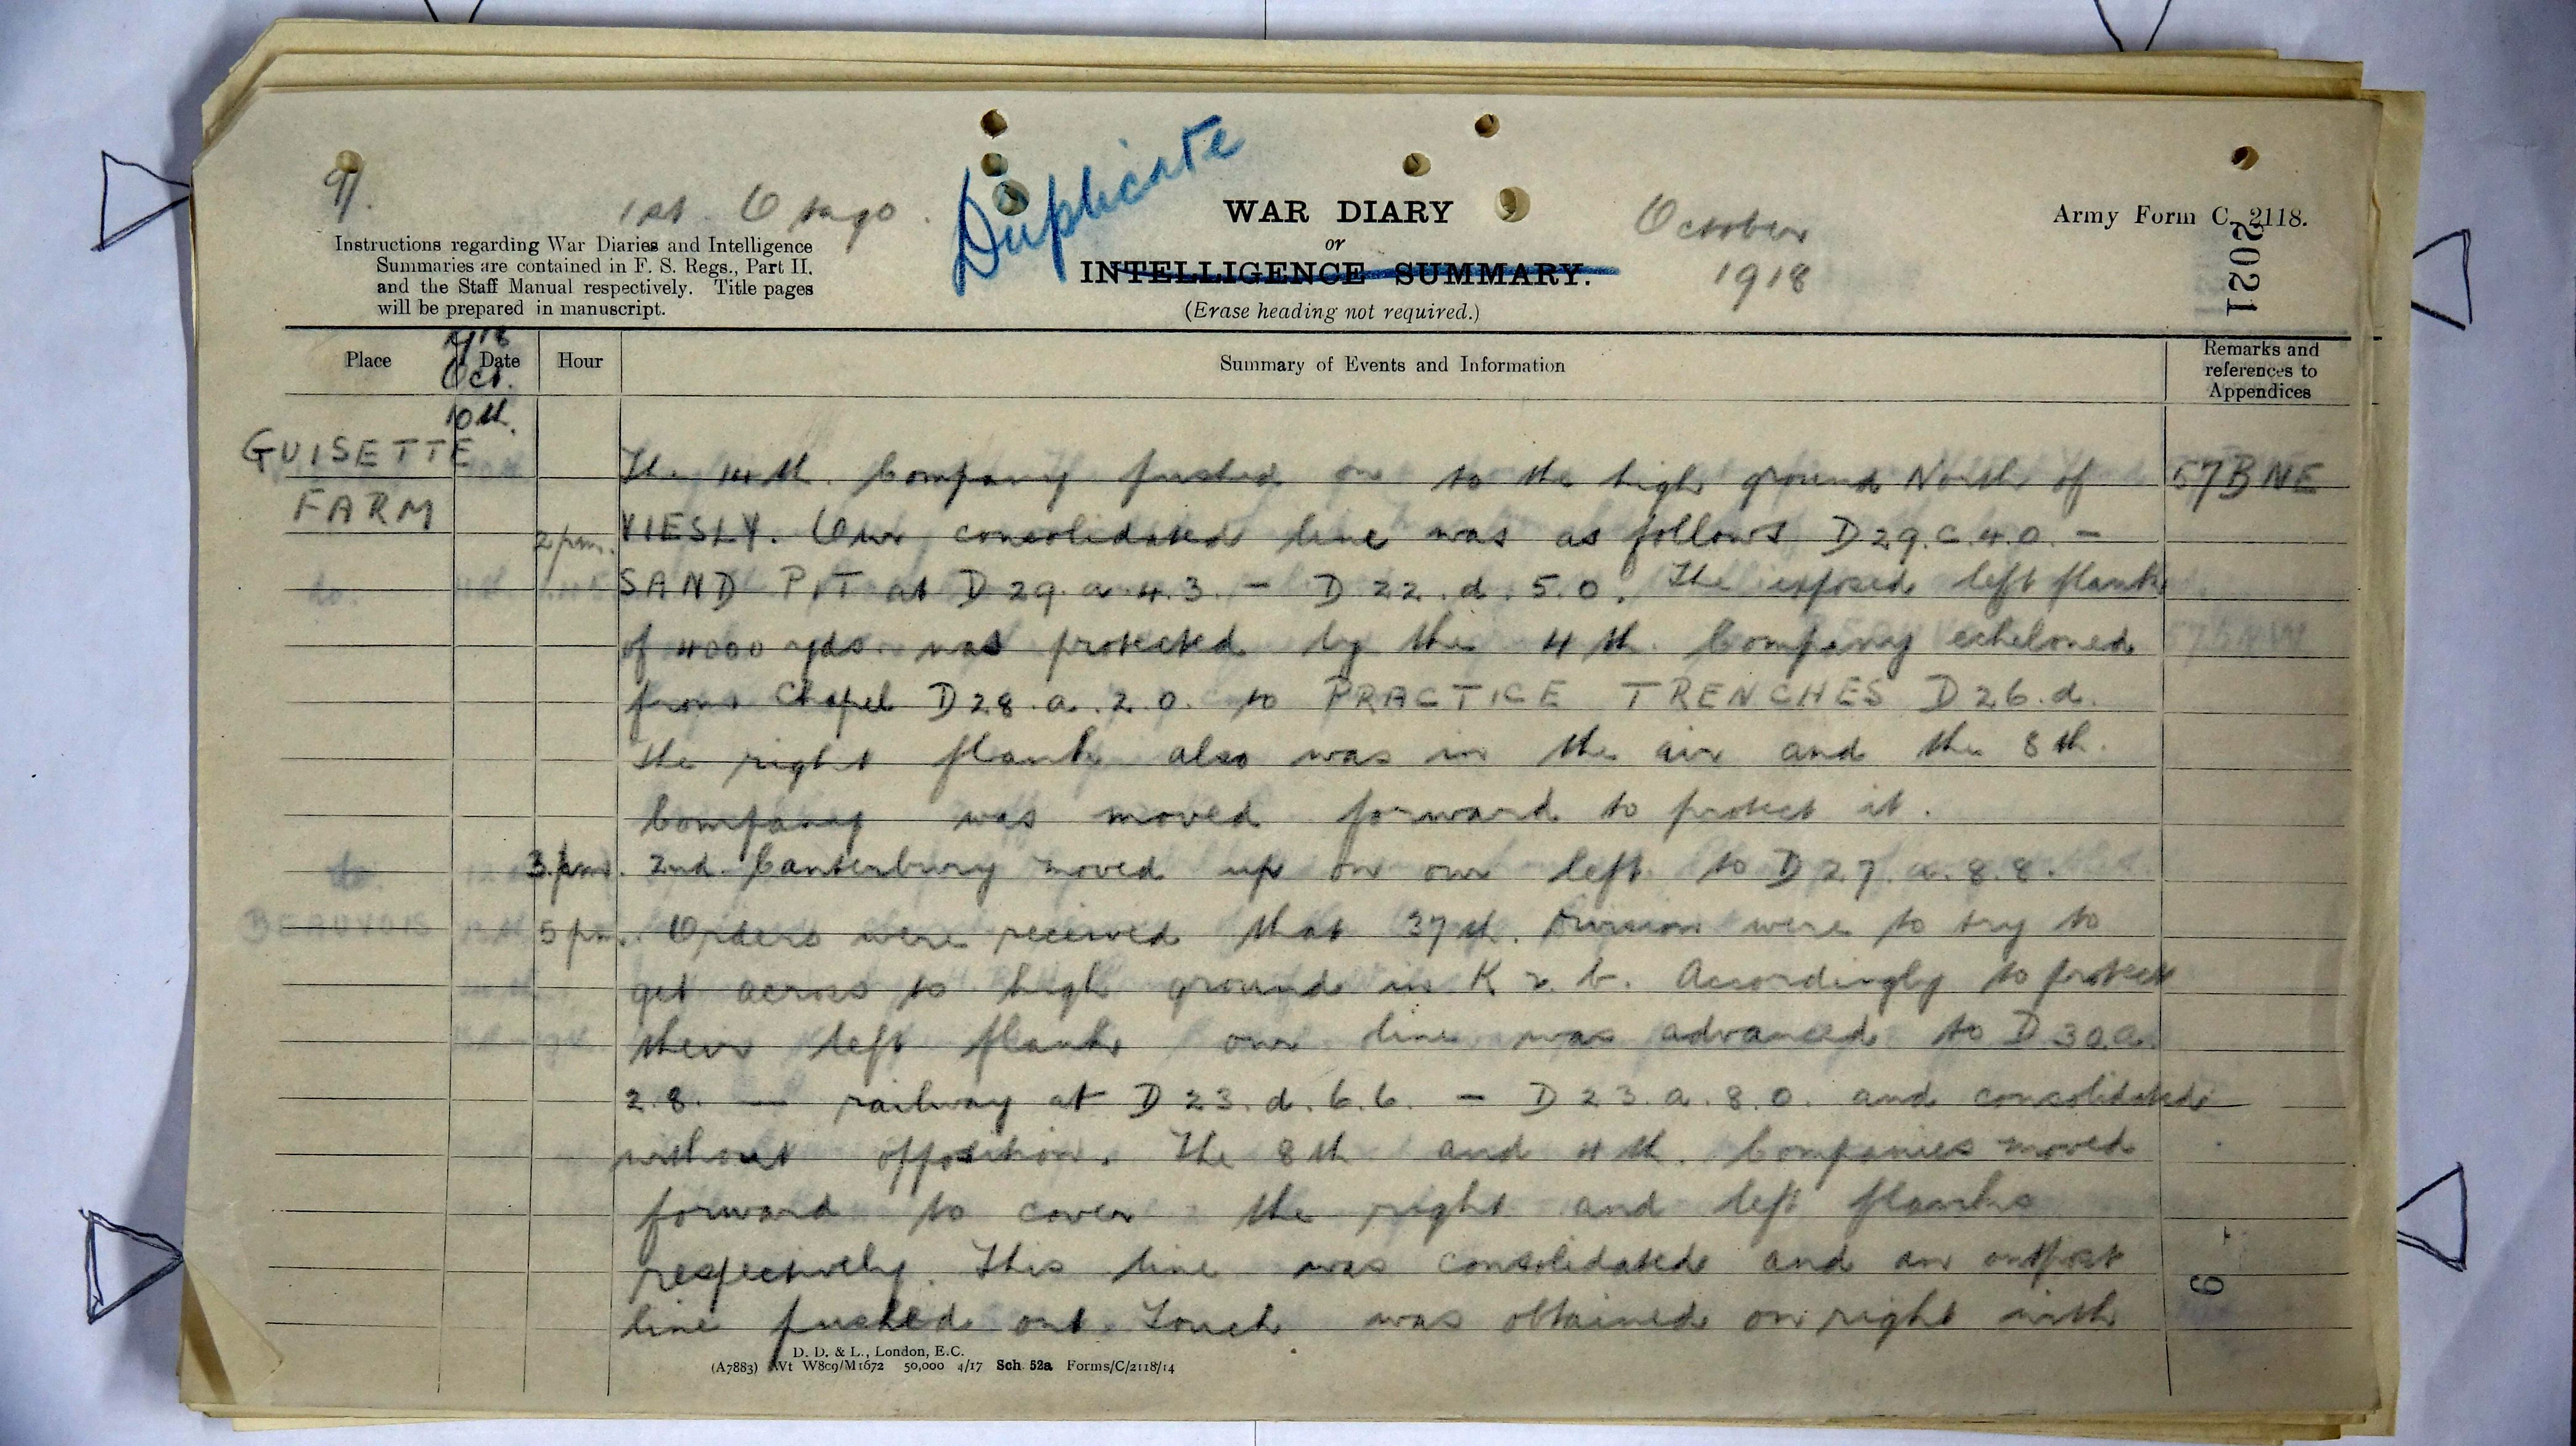 9.
1st Otago.
Duplicate
WAR DIARY
or
INTELLIGENCE SUMMARY.
(Erase heading not required.)
October
1918
Army Form C. 2118.
2021
Instructions regarding War Diaries and Intelligence
Summaries are contained in F. S. Regs., Part II.
and the Staff Manual respectively. Title pages
will be prepared in manuscript.
Place
Date
Oct.
Hour
Summary of Events and Information
Remarks and
references to
Appendices
10th.
GUISETTE
FARM
The 14th. Company pushed on to the high ground North of 57B NE
2 pm. VIESLY. Our consolidated line was as follows D 29. c. 4. 0. –
SAND PIT at D 29. a. 4. 3. – D 22. d. 5. 0. The exposed left flank
of 4000 yds. was protected by the 4th. Company echeloned
from Chapel D 28. a. 2. 0. to PRACTICE TRENCHES D 26. d.
The right flank also was in the air and the 8th.
Company was moved forward to protect it.
3 pm. 2nd. Canterbury moved up on our left to D 27. a. 8. 8.
5 pm. Orders were received that 37th. Division were to try to
get across to high ground in K 2. b. Accordingly to protect
their left flank our line was advanced to D 30. a.
2. 8. — railway at D 23. d. 6. 6. – D 23. a. 8. 0. and consolidated
without opposition. The 8th and 4th. Companies moved
forward to cover the right and left flanks
respectively. This line was consolidated and an outpost
line pushed out. Touch was obtained on right with
D. D. & L., London, E.C.
(A7883) Wt W809/M1672 50,000 4/17 Sch. 52a Forms/C/2118/14